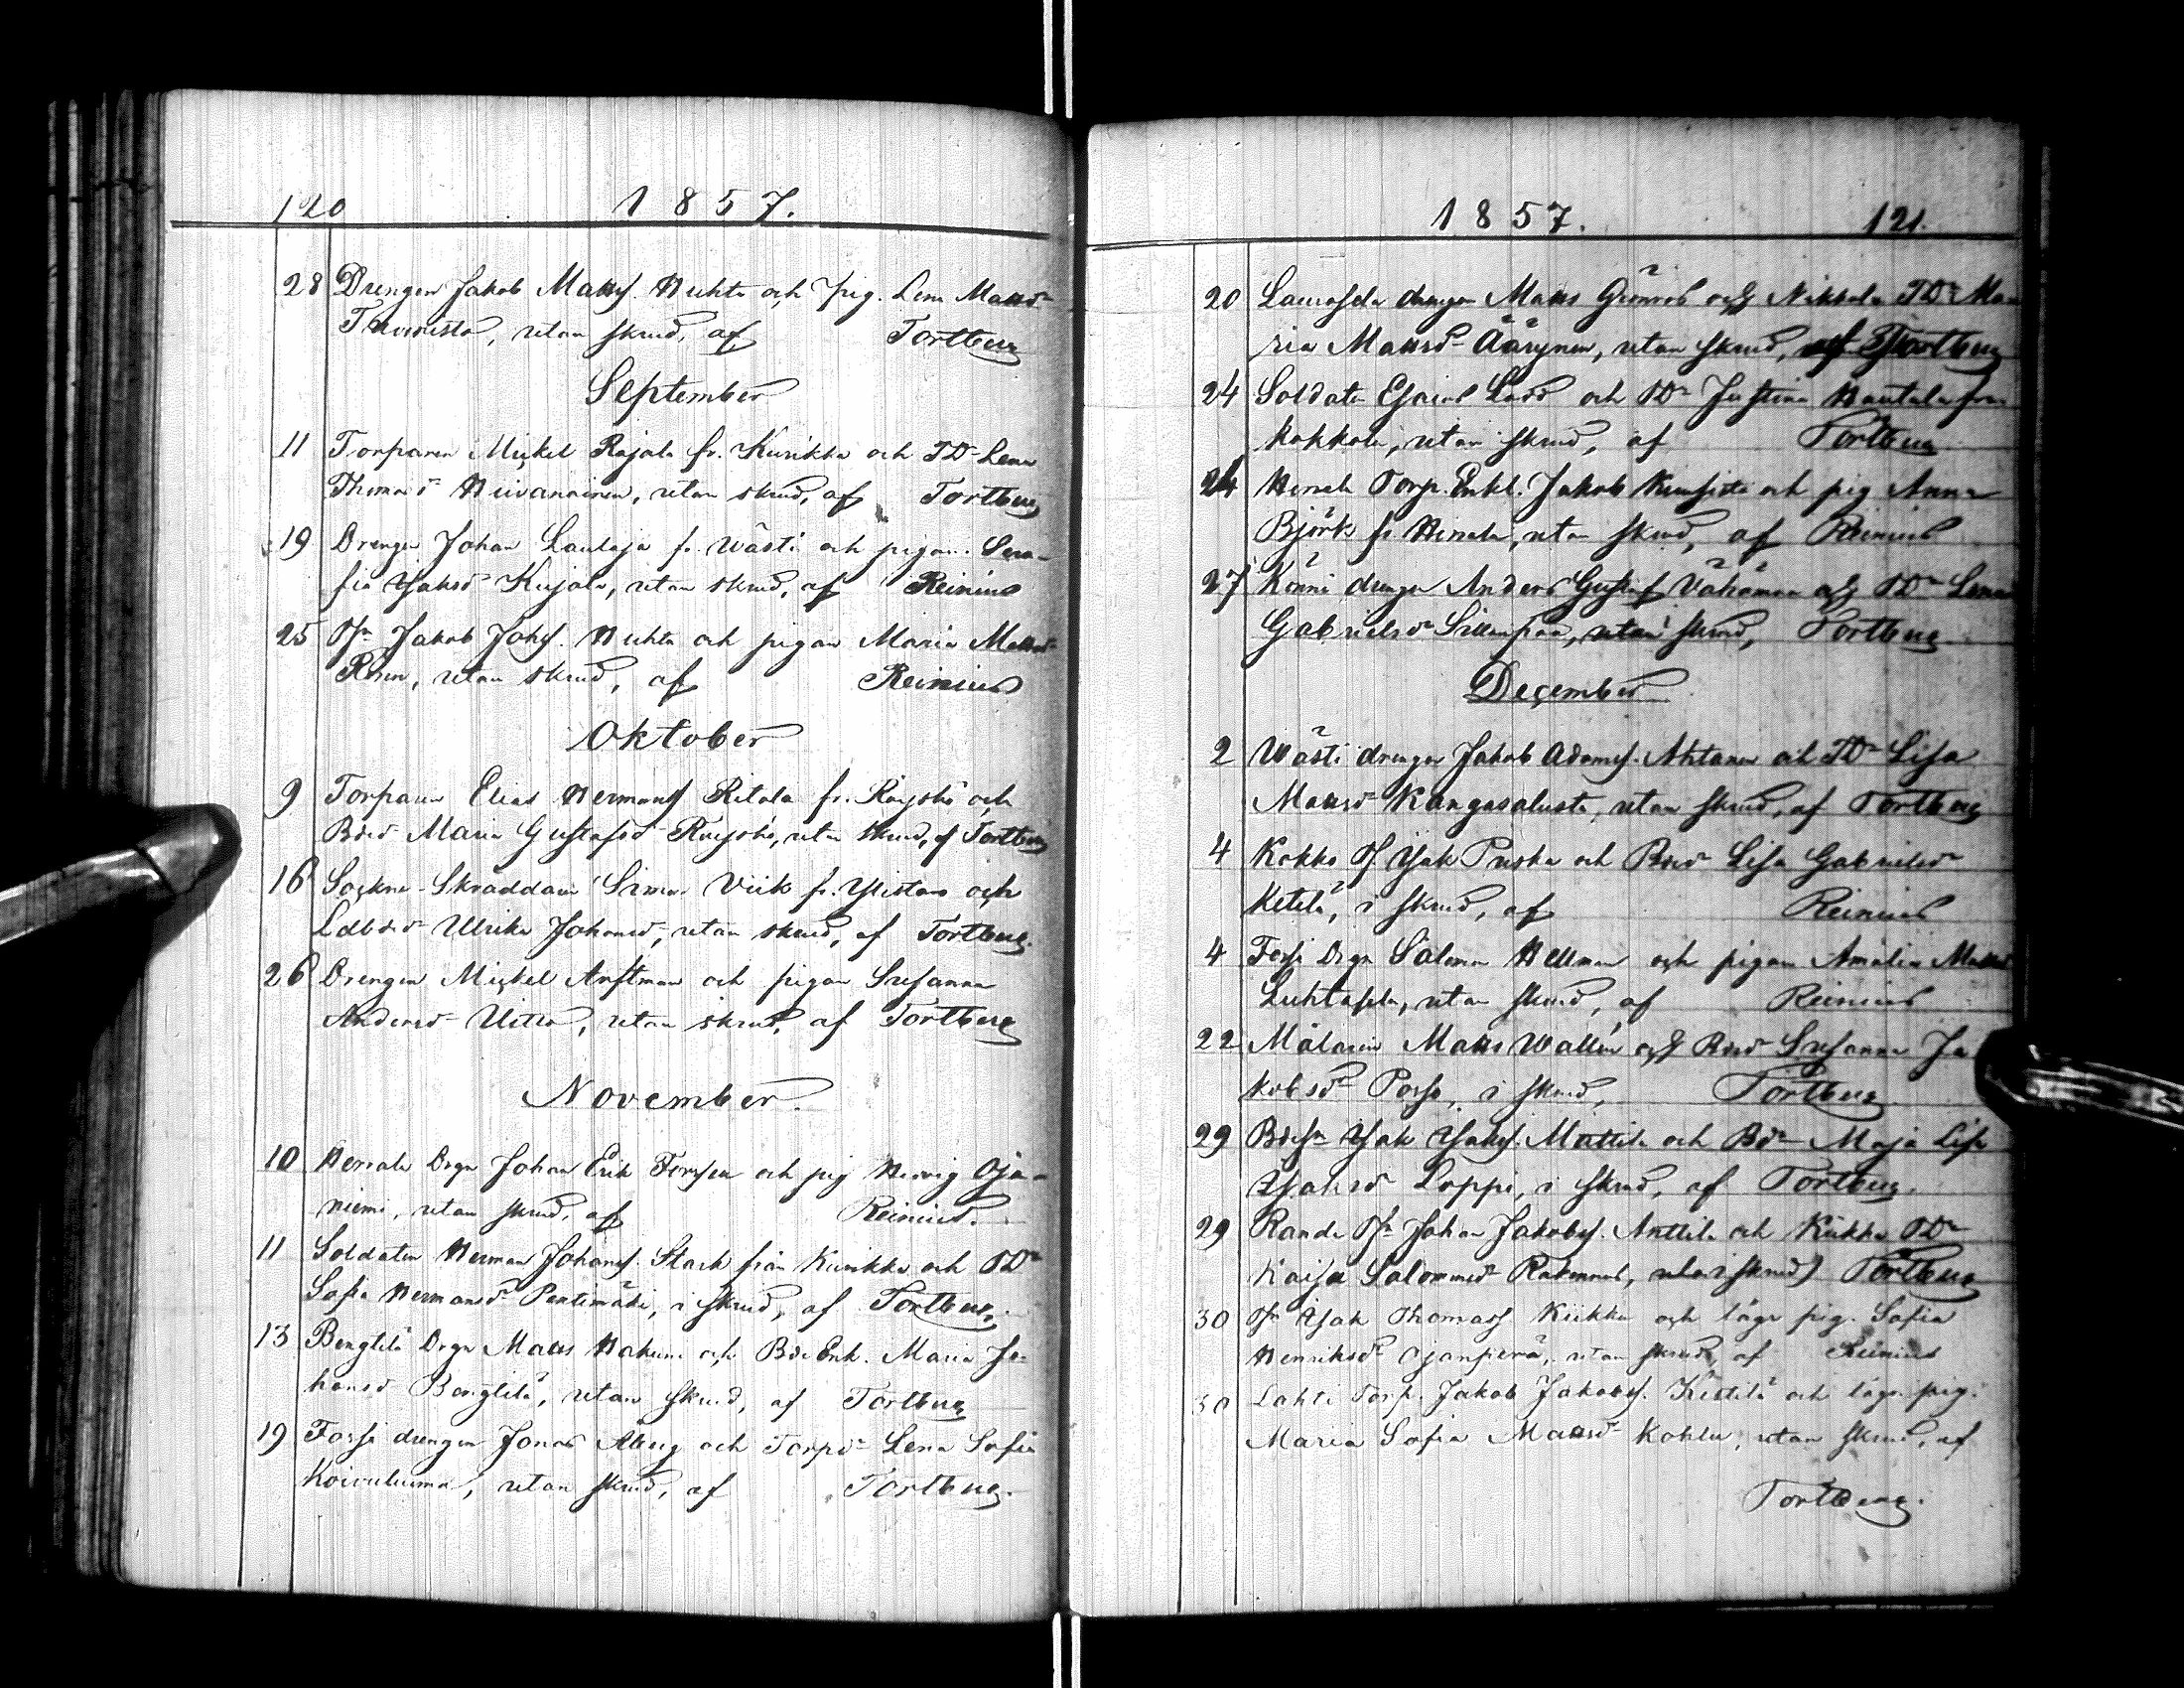 120
1857.
28 Drengen Jakob Mattsf. Huhta och pig. Lena Mattsdr
utan skrud, af Tortberg
September
11 Torparen Mickel Rajala fr. Kurikka och TDr Lena
Thomasdr Heivanainen, utan skrud, af Tortberg
19 Drengen Johan Laulaja fr. Wästi och pigan Sera-
fia Isaksdr Kujala, utan skrud, af Reinius
25 Jakob Johsf. Huhta och pigan Maria Mattsdr
Rosen, utan skrud, af Reinius
Oktober
9 Torparen Elias Hermansf Ritala fr. Röyskö och
Bdrdr Maria Gustafsdr Röyskö, utan skrud, af Tortberg
16 Sockne-Skräddaren Simon Viik fr. Ylistaro och
Ulrika Johansdr, utan skrud, af Tortberg.
26 Drengen Mickel och pigan Susanna
Andersdr Uitto, utan skrud, af Tortberg
November.
10 Herrala Drgn Johan Erik Forssen och pig Hevig Oja-
niemi, utan skrud, af Reinius.
11 Soldaten Herman Johansf. Stark från Kurikka och TDr
Sofia Hermansdr Pentimäki, i skrud, af Tortberg.
13 Bengtilä Drgn Matts Hakuni och Bde Enk. Maria Jo-
hansd Bengtilä, utan skrud, af Tortberg
19 Forssi drengen Jonas Åberg och Torpdr Lena Sofia
Koivuluoma, utan skrud, af Tortberg.
1857.
121.
20 Laurosela drengen Matts Grönroos och Nikkola TDr Ma-
ria Mattsdr Äärynen, utan skrud, af Tortberg
24 Soldaten Esaias Ladd och TDr Justina Hautala från
Kokkola, utan skrud, af Tortberg
24 Herrala Torp. Enkl. Jakob och pig Anna
Björk fr Herrala, utan skrud, af Reinius
27 Könni drengen Anders Gustaf Vähämaa och TDr Lena
Gabrielsdr Sillanpää, utan skrud, Tortberg
December
2 Wästi drengen Jakob Adamsf. Ahtanen och TDr Lisa
Mattsdr Kangasalusta, utan skrud, af Tortberg
4 Kokko Isak Puska och Bdrdr Lisa Gabrielsdr
Ketelä, i skrud, af Reinius
4 Forssi Drgn Salomon Hellman och pigan Amalia Mattsd
Luhtasela, utan skrud, af Reinius
22 Målaren Matts Wallén och Bdrdr Susanna Ja
kobsdr Porssi, i skrud, Tortberg
29 Bdesn Isak Isaksf. Mattila och Bdr Maja Lisa
Isaksdr Loppi, i skrud, af Tortberg.
29 Randa Johan Jakobsf. Anttila och Kiikka TDr
Kaisa Salomonsd utan skrud, Tortberg
30 Isak Thomasf Kiikka och lägr pig. Sofia
Henriksdr Ojanperä, utan skrud, af Reinius
30 Lahti Torp. Jakob Jakobsf. Kestilä och lägr. pig.
Maria Sofia Mattsdr Kohlu, utan skrud, af
Tortberg.